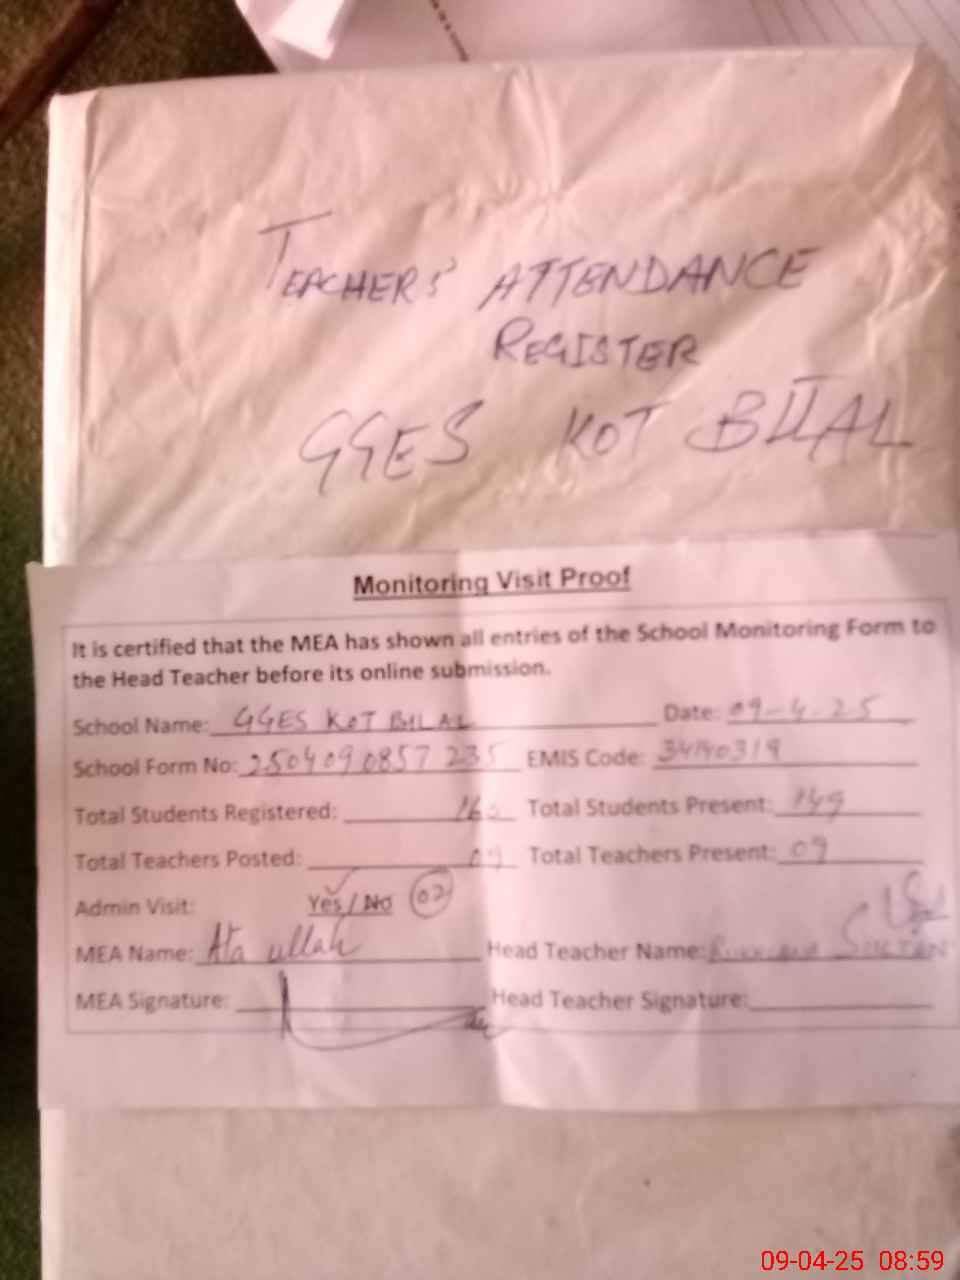 TEACHERS' ATTENDANCE
REGISTER
GGES KOT BILAL
Monitoring Visit Proof
It is certified that the MEA has shown all entries of the School Monitoring Form to
the Head Teacher before its online submission.
School Name: GGES KOT BILAL Date: 09-4-25
School Form No: 2504090857235 EMIS Code: 34140319
Total Students Registered: 160 Total Students Present: 149
Total Teachers Posted: 09 Total Teachers Present: 09
Admin Visit: Yes / No 02
MEA Name: Ata ullah Head Teacher Name: SULTAN
MEA Signature: Head Teacher Signature:
09-04-25 08:59